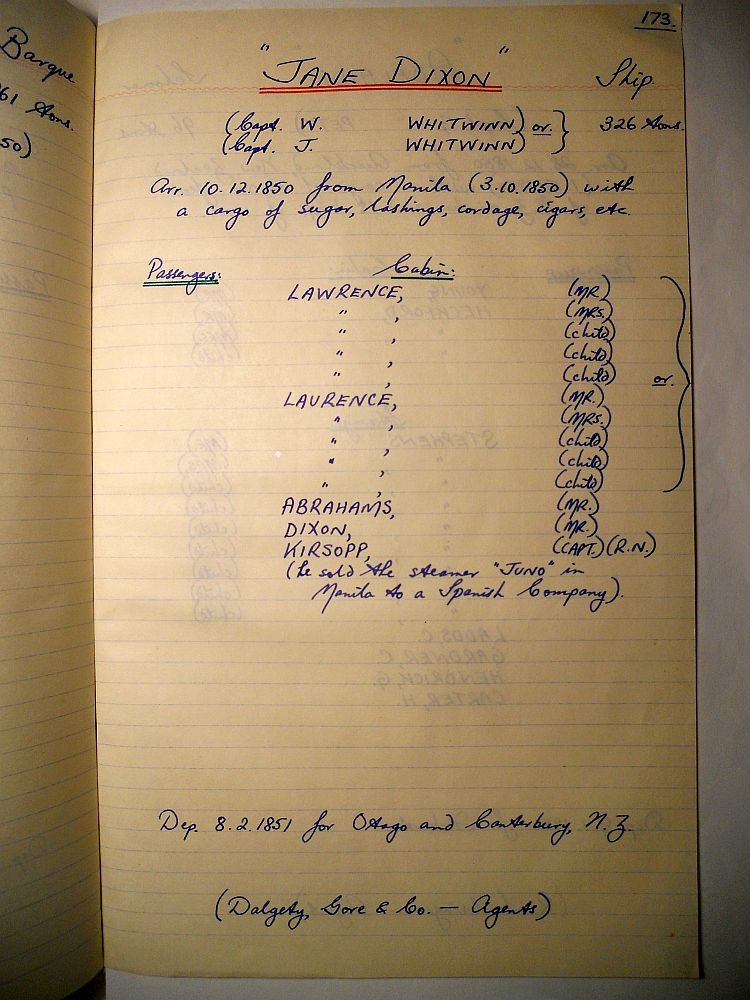 173.
Barque
61 tons.
50)
"JANE DIXON" Ship.
(Capt. W. WHITWINN) or. } 326 tons.
(Capt. J. WHITWINN)
Arr. 10.12.1850 from Manila (3.10.1850) with
a cargo of sugar, lashings, cordage, cigars, etc.
Passengers: Cabin:
LAWRENCE, (MR.)
" , (MRS.)
" , (child)
" , (child)
" , (child) or.
LAURENCE, (MR.)
" , (MRS.)
" , (child)
" , (child)
" , (child)
ABRAHAMS, (MR.)
DIXON, (MR.)
KIRSOPP, (CAPT.) (R.N.)
(he sold the steamer "JUNO" in
Manila to a Spanish Company).
LADDS, C.
GARDNER, C.
HENDRICK, G.
CARTER, H.
Dep. 8.2.1851 for Otago and Canterbury, N.Z.
(Dalgety, Gore & Co. — Agents)